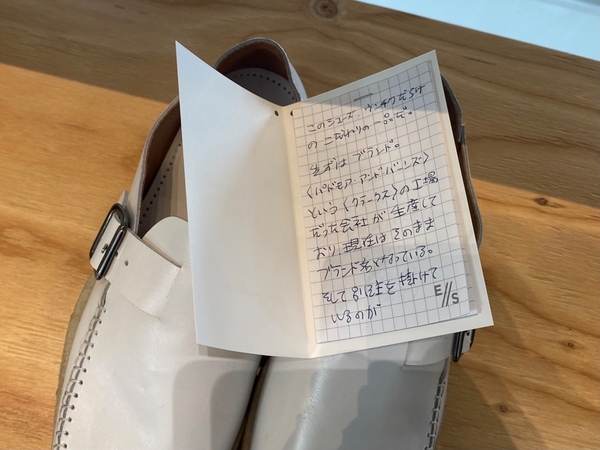 このシューズ ウンチクだらけ
のこだわりの一品だ。
まずはブランド。
〈パドモア・アンド・バーンズ〉
という〈クラークス〉の工場
だった会社が生産して
おり現在はそのまま
ブランド名になっている。
そして別注を掛けて
いるのが
E//S